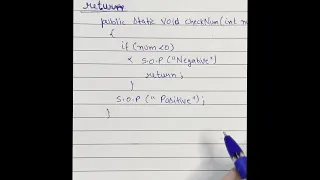 return
public static void checkNum(int n
{
if (num<0)
{ S.O.P ("Negative")
return;
}
S.O.P (" Positive");
}